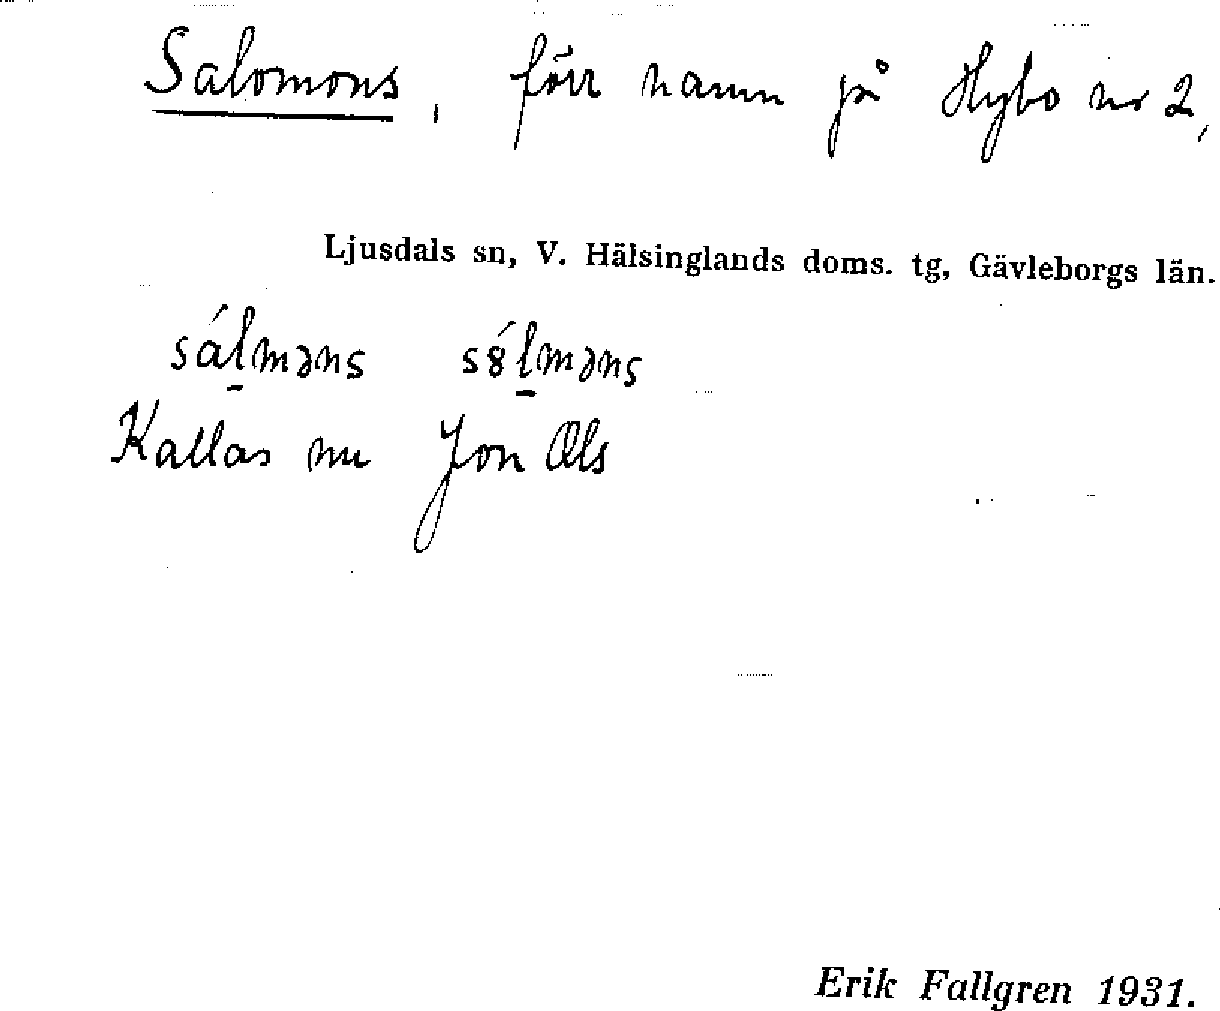 Salomons, förr namn på Hybo nr 2,
Ljusdals sn, V. Hälsinglands doms. tg, Gävleborgs län.
sálməns s8́lməns
Kallas nu Jon Ols
Erik Fallgren 1931.